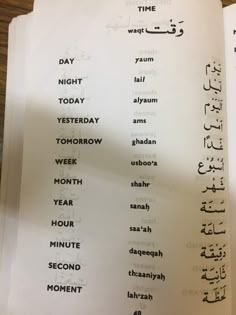 TIME
waqt وَقْت
DAY yaum يَوْم
NIGHT lail
TODAY alyaum
YESTERDAY ams
TOMORROW ghadan غَدًا
WEEK usboo'a
MONTH shahr شَهْر
YEAR sanah سَنَة
HOUR saa'ah سَاعَة
MINUTE daqeeqah دَقِيقَة
SECOND th:aaniyah ثَانِيَة
MOMENT lah·zah لَحْظَة